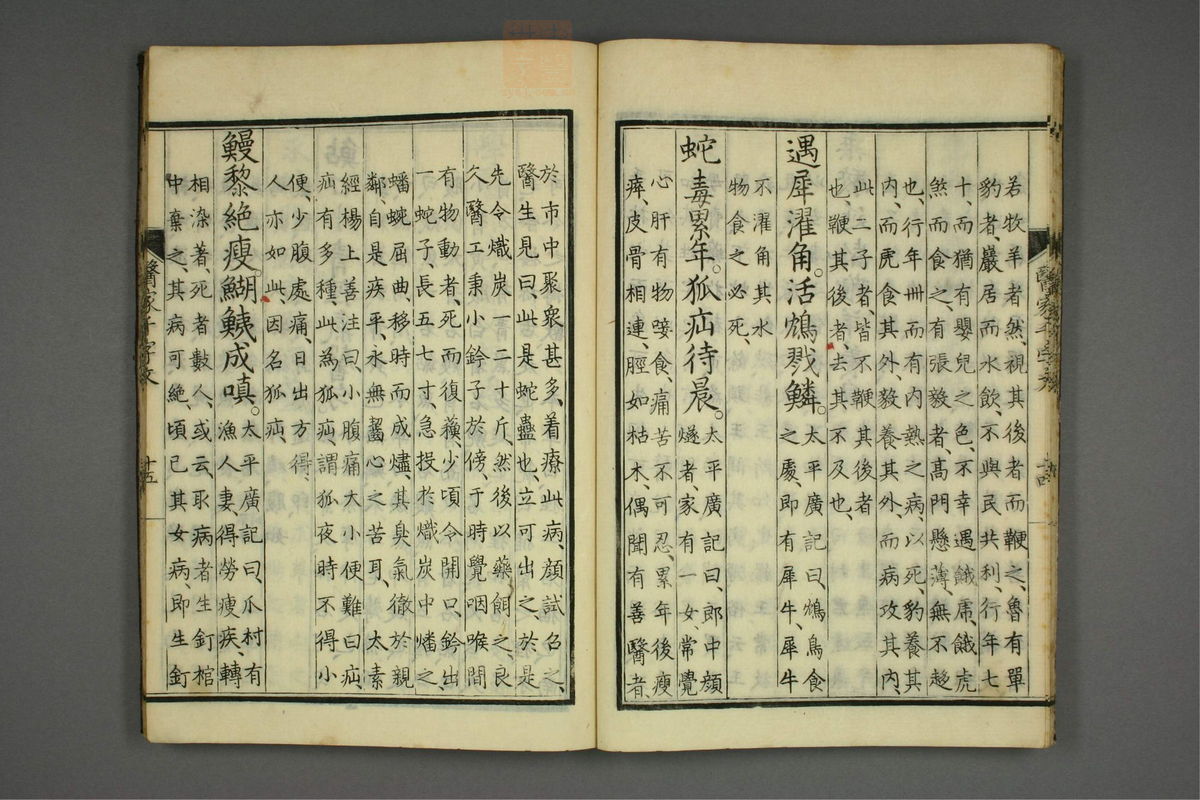 若牧羊者然視其後者而鞭之魯有單
豹者巖居而水飲不與民共利行年七
十而猶有嬰兒之色不幸遇餓虎餓虎
煞而食之有張毅者高門懸薄無不趍
也行年卌而有內熱之病以死豹養其
內而虎食其外毅養其外而病攻其內
此二子者皆不鞭其後者
也鞭其後者去其不及也
遇犀濯角。活鴆戮鱗。太平廣記曰鴆鳥食
之處即有犀牛犀牛
不濯角其水
物食之必死
蛇毒累年。狐疝待晨。太平廣記曰郎中顔
燧者家有一女常覺
心肝有物唼食痛苦不可忍累年後瘦
瘁皮骨相連脛如枯木偶聞有善醫者
於市中聚衆甚多着療此病顔試召之
醫生見曰此是蛇蠱也立可出之於是
先令熾炭一二十斤然後以藥餌之良
久醫工秉小鈐子於傍于時覺咽喉間
有物動者死而復穌少頃令開口鈐出
一蛇子長五七寸急投於熾炭中燔之
蟠蜿屈曲移時而成燼其臭氣徹於親
鄰自是疾平永無齧心之苦耳太素
經楊上善注曰小腹痛大小便難曰疝
疝有多種此為狐疝謂狐夜時不得小
便少腹處痛日出方得
人亦如此因名狐疝
鰻黎絶瘦。鰗鮧成嗔。太平廣記曰瓜村有
漁人妻得勞瘦疾轉
相染著死者數人或云取病者生釘棺
中棄之其病可絶頃已其女病即生釘
醫家千字文
十五